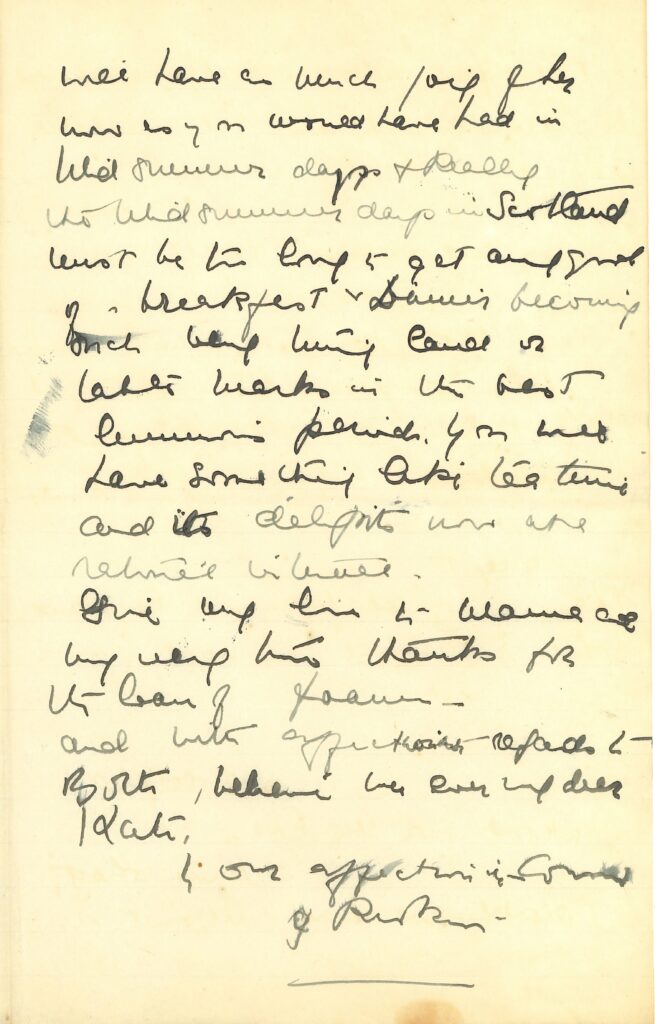 will have as much joy of her
now as you would have had in
Mid summer days & Really
the Midsummer days in Scotland
must be too long to get any good
of - breakfast & Dinner becoming
such being mere land or
table marks in the vast
luminous period. You will
have something like tea time
and its delights now are
 
Give my love to Mama and
my very true thanks for
the loan of Joanna -
and with affectionate regards to
Both, believe me ever my dear
Kate,
Your affectionate Cousin
J Ruskin -